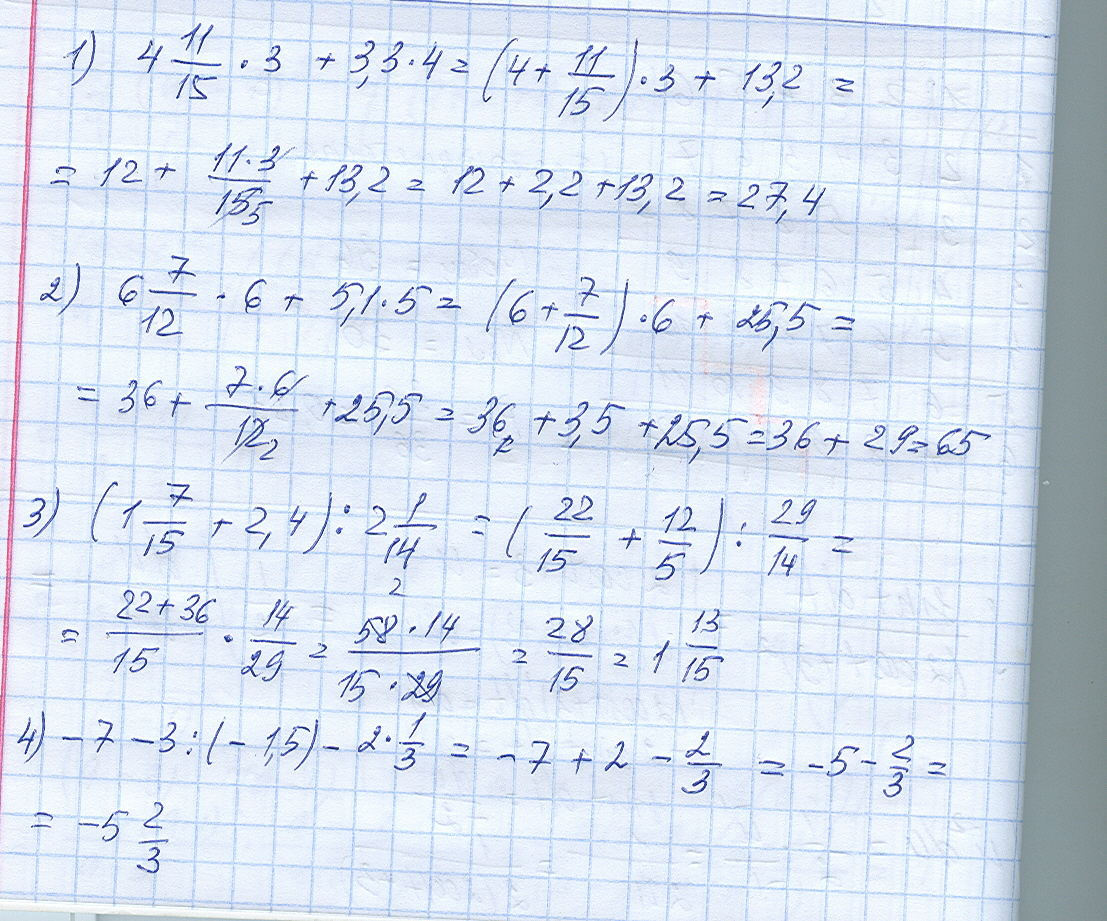 1) 4 11/15 · 3 + 3,3·4 = (4 + 11/15)·3 + 13,2 =
= 12 + 11·3/15 5 + 13,2 = 12 + 2,2 + 13,2 = 27,4
2) 6 7/12 · 6 + 5,1·5 = (6 + 7/12)·6 + 25,5 =
= 36 + 7·6/12 2 + 25,5 = 36 + 3,5 + 25,5 = 36 + 29 = 65
3) (1 7/15 + 2,4) : 2 1/14 = (22/15 + 12/5) : 29/14 =
= 22+36/15 · 14/29 = 2 58·14/15·29 = 28/15 = 1 13/15
4) -7 -3:(-1,5) - 2·1/3 = -7 + 2 - 2/3 = -5 - 2/3 =
= -5 2/3